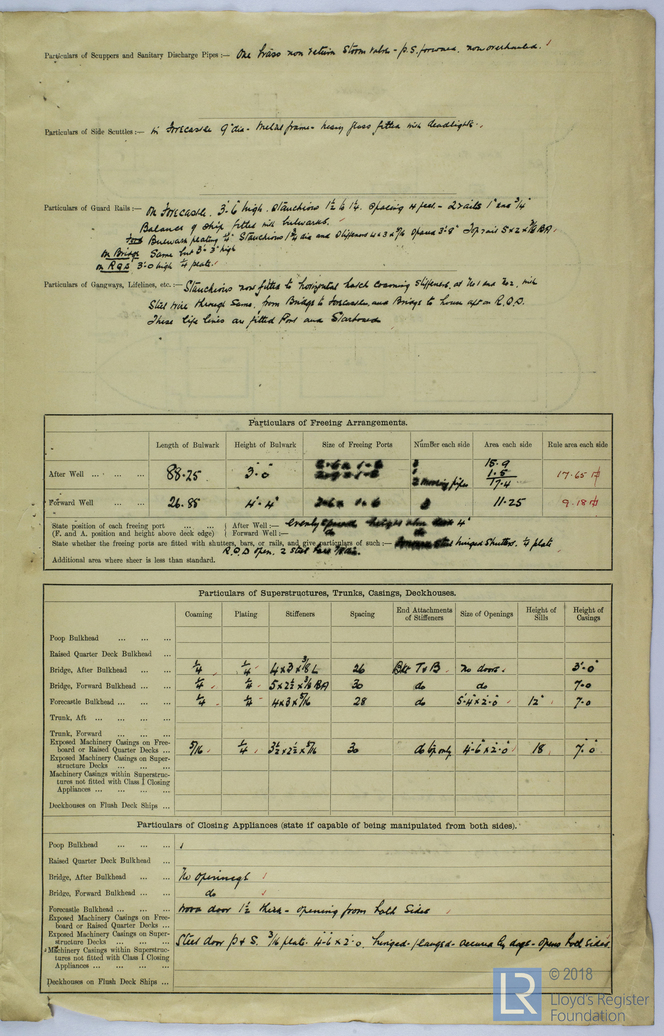 Particulars of Scuppers and Sanitary Discharge Pipes :— One brass non return storm valve - P.S. forward. now overhauled.
Particulars of Side Scuttles :— In Forecastle 9" dia - metal frame - heavy glass fitted with deadlights.
Particulars of Guard Rails :— On Forecastle. 3'-6 high. Stanchions 1½ & 1¼. Spacing 4 feet - 2 rails 1" and ¾"
Balance of ship fitted with bulwarks.
Bulwark plating ¼" Stanchions 1¾ dia and Stiffeners 4 x 3 x 5/16 spaced 3'-9" Top rail 5 x 2 x BA
On Bridge Same but 3'-3" high
On RQD 3'-0 high ¼ plate.
Particulars of Gangways, Lifelines, etc. :— Stanchions now fitted to horizontal hatch coaming stiffeners, at No 1 and No 2, with
Steel wire through same, from Bridge to Forecastle, and Bridge to house aft on R.Q.D.
These life lines are fitted Port and Starboard
Particulars of Freeing Arrangements.
Length of Bulwark Height of Bulwark Size of Freeing Ports Number each side Area each side Rule area each side
After Well ... 88.25 3'-0" 3 15.9 17.65
1 1.5
2 mooring pipes 17.4
Forward Well 26.88 4'-4" 3-6 x 1-6 3 11.25 9.18
State position of each freeing port ... ... After Well :— evenly spaced heights above deck 4"
(F. and A. position and height above deck edge) Forward Well :— do do
State whether the freeing ports are fitted with shutters, bars, or rails, and give particulars of such :— hinged shutters. ¼ plate
R.Q.D open. 2 steel bars
Additional area where sheer is less than standard.
Particulars of Superstructures, Trunks, Casings, Deckhouses.
Coaming Plating Stiffeners Spacing End Attachments of Stiffeners Size of Openings Height of Sills Height of Casings
Poop Bulkhead ... ... ...
Raised Quarter Deck Bulkhead ...
Bridge, After Bulkhead ... ... ¼ ¼ 4 x 3 x 3/8 L 26 Bkt T & B no doors. 3'-0"
Bridge, Forward Bulkhead ... ... ¼ ¼ 5 x 2½ x 3/8 BA 30 do do 7-0
Forecastle Bulkhead ... ... ¼ ¼ 4 x 3 x 5/16 28 do 5-4 x 2-0 12" 7-0
Trunk, Aft ... ... ...
Trunk, Forward ... ... ...
Exposed Machinery Casings on Freeboard or Raised Quarter Decks ... 5/16 ¼ 3½ x 2½ x 5/16 30 do top only 4-6 x 2-0 18 7-0
Exposed Machinery Casings on Superstructure Decks ... ... ...
Machinery Casings within Superstructures not fitted with Class I Closing Appliances ... ... ...
Deckhouses on Flush Deck Ships ...
Particulars of Closing Appliances (state if capable of being manipulated from both sides).
Poop Bulkhead ... ... ...
Raised Quarter Deck Bulkhead ...
Bridge, After Bulkhead ... ... No openings
Bridge, Forward Bulkhead ... ... do
Forecastle Bulkhead ... ... Wood door 1½ thick - opening from both sides
Exposed Machinery Casings on Freeboard or Raised Quarter Decks ...
Exposed Machinery Casings on Superstructure Decks ... ... ... Steel door P & S. 3/16 plate. 4-6 x 2-0. hinged - flanged - secured by dogs - opens both sides.
Machinery Casings within Superstructures not fitted with Class I Closing Appliances ... ... ...
Deckhouses on Flush Deck Ships ...
LR
© 2018
Lloyd's Register
Foundation